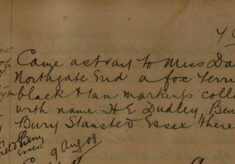 Came astray to Miss Da
Northgate End a fox terri
black & tan markings coll
with name H E Dudley Ben
Bury Stansted Essex there
9 Aug 08